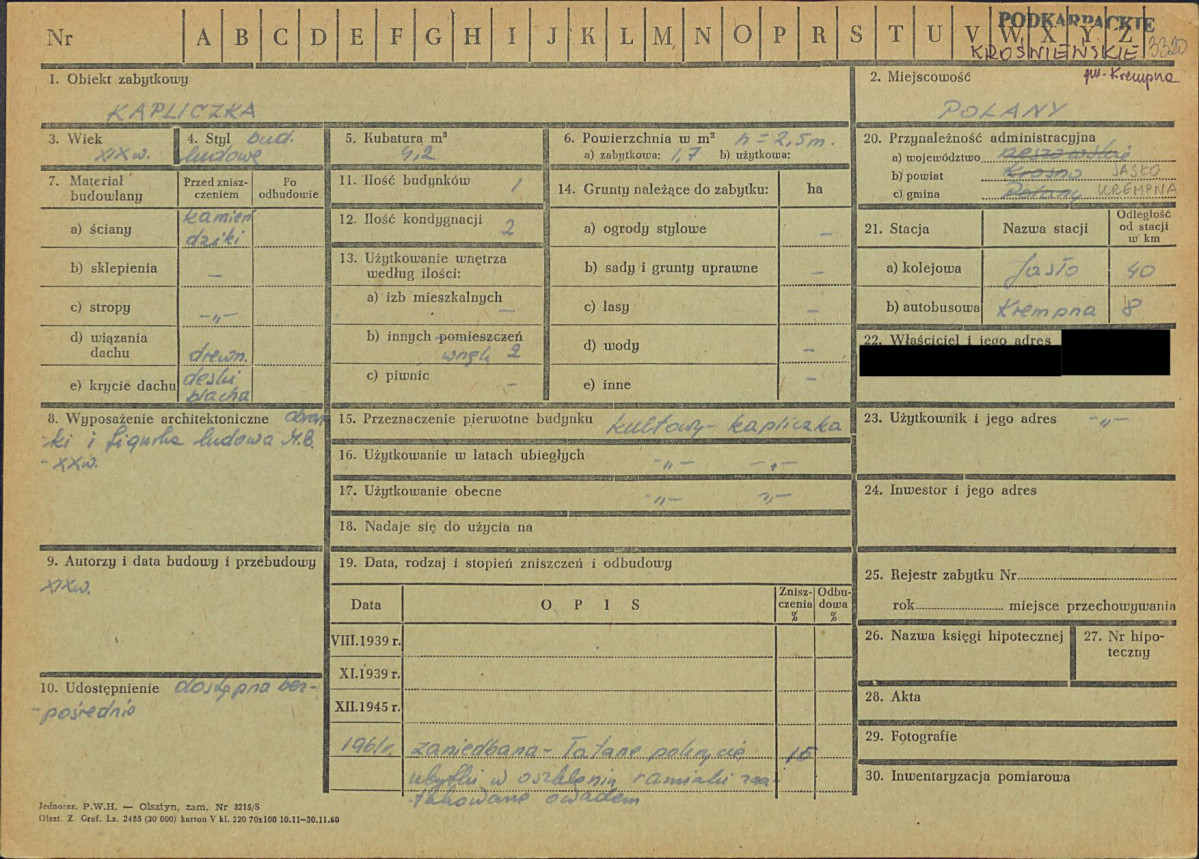 Nr A B C D E F G H I J K L M N O P R S T U V W X Y Z
PODKARPACKIE
KROŚNIEŃSKIE 3320
pw. Krempna
1. Obiekt zabytkowy
KAPLICZKA
2. Miejscowość
POLANY
3. Wiek
XIX w.
4. Styl bud.
ludowe
5. Kubatura m³
4,2
6. Powierzchnia w m² h = 2,5 m.
a) zabytkowa: 1,7 b) użytkowa:
7. Materiał budowlany
Przed zniszczeniem
Po odbudowie
a) ściany kamień
dziki
b) sklepienia –
c) stropy –„–
d) wiązania
dachu drewn.
e) krycie dachu deski
blacha
8. Wyposażenie architektoniczne obraz-
ki i figurka ludowa M.B.
- XX w.
9. Autorzy i data budowy i przebudowy
XIX w.
10. Udostępnienie dostępna bez-
-pośrednio
11. Ilość budynków 1
12. Ilość kondygnacji 2
13. Użytkowanie wnętrza
według ilości:
a) izb mieszkalnych –
b) innych pomieszczeń
wnęk 2
c) piwnic –
14. Grunty należące do zabytku: ha
a) ogrody stylowe –
b) sady i grunty uprawne –
c) lasy –
d) wody –
e) inne –
15. Przeznaczenie pierwotne budynku kultowy - kapliczka
16. Użytkowanie w latach ubiegłych –„– –„–
17. Użytkowanie obecne –„– –„–
18. Nadaje się do użycia na
19. Data, rodzaj i stopień zniszczeń i odbudowy
Data OPIS Zniszczenia % Odbudowa %
VIII.1939 r.
XI.1939 r.
XII.1945 r.
1961 r. zaniedbana - łatane pokrycie, 15
ubytki w oszkleniu ramiaki zaa-
takowane owadem
20. Przynależność administracyjna
a) województwo rzeszowskie
b) powiat Krosno JASŁO
c) gmina Polany KREMPNA
21. Stacja Nazwa stacji Odległość od stacji w km
a) kolejowa Jasło 40
b) autobusowa Krempna 8
22. Właściciel i jego adres
23. Użytkownik i jego adres –„–
24. Inwestor i jego adres
25. Rejestr zabytku Nr
rok miejsce przechowywania
26. Nazwa księgi hipotecznej
27. Nr hipo-
teczny
28. Akta
29. Fotografie
30. Inwentaryzacja pomiarowa
Jednoraz. P.W.H. — Olsztyn, zam. Nr 3215/S
Olszt. Z. Graf. Lz. 2485 (30 000) karton V kl. 220 70x100 10.11—30.11.60